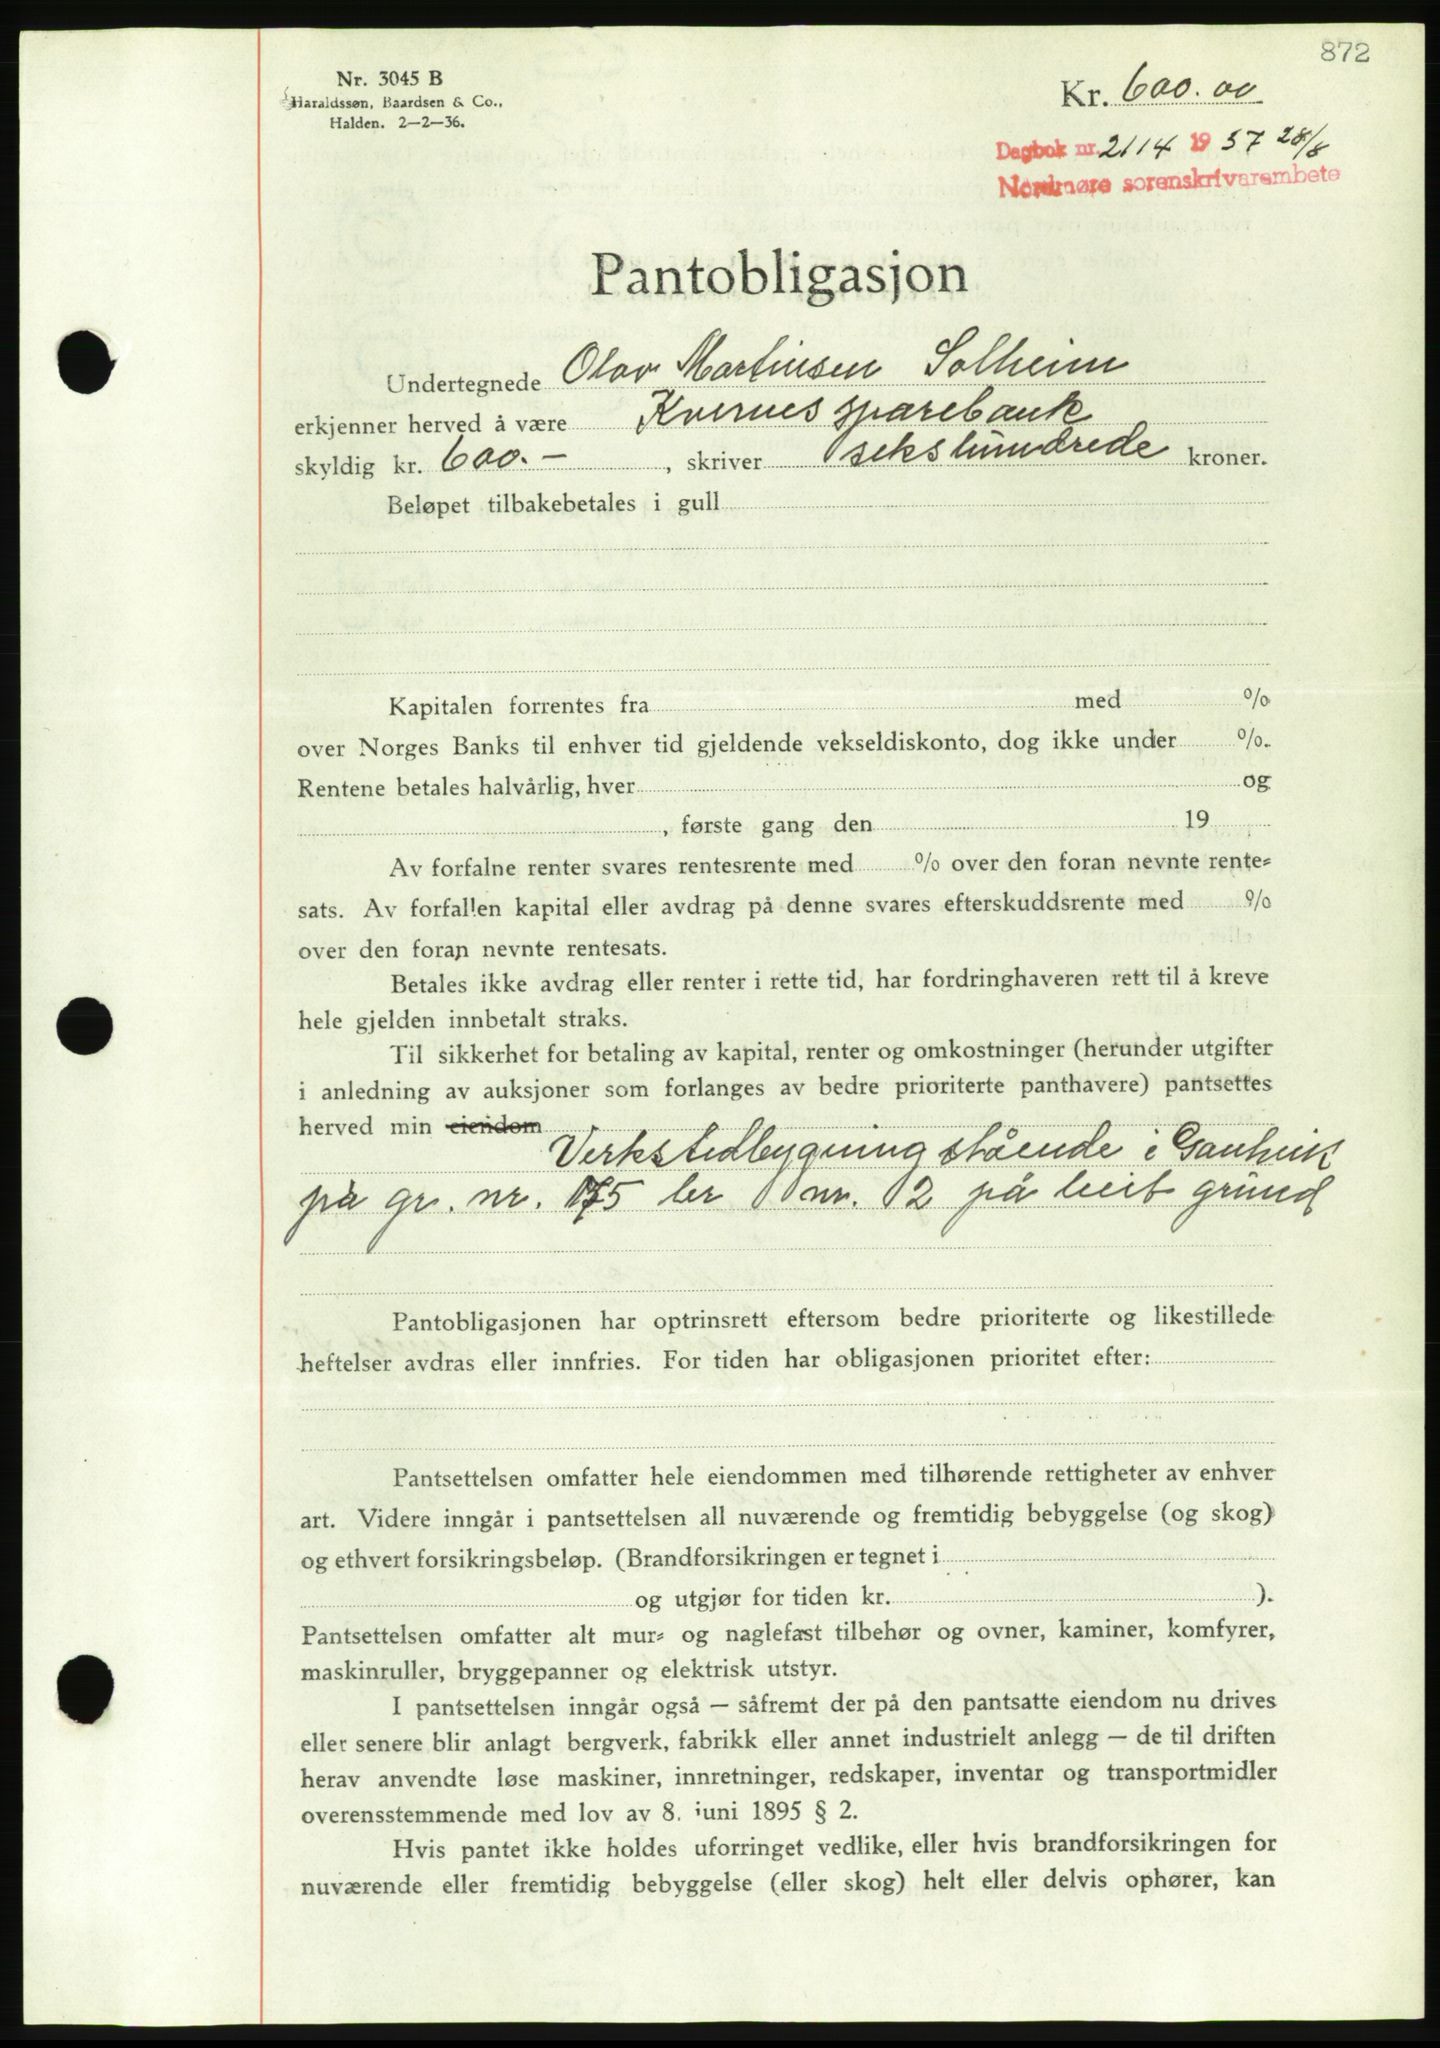 872
Nr. 3045 B
Haraldssøn, Baardsen & Co.,
Halden. 2-2-36.
Kr. 600.00
Dagbok nr. 2114 1937 28/8
Nordmøre sorenskrivarembete
Pantobligasjon
Undertegnede Olav Martinsen Solheim
erkjenner herved å være Kvernes sparebank
skyldig kr. 600.- , skriver sekshundrede kroner.
Beløpet tilbakebetales i gull
Kapitalen forrentes fra med %
over Norges Banks til enhver tid gjeldende vekseldiskonto, dog ikke under %.
Rentene betales halvårlig, hver og
, første gang den 19
Av forfalne renter svares rentesrente med % over den foran nevnte rente=
sats. Av forfallen kapital eller avdrag på denne svares efterskuddsrente med %
over den foran nevnte rentesats.
Betales ikke avdrag eller renter i rette tid, har fordringhaveren rett til å kreve
hele gjelden innbetalt straks.
Til sikkerhet for betaling av kapital, renter og omkostninger (herunder utgifter
i anledning av auksjoner som forlanges av bedre prioriterte panthavere) pantsettes
herved min eiendom
Verkstedbygning stående i
på gr. nr. 175 br nr. 2 på leiet grund
Pantobligasjonen har optrinsrett eftersom bedre prioriterte og likestillede
heftelser avdras eller innfries. For tiden har obligasjonen prioritet efter:
Pantsettelsen omfatter hele eiendommen med tilhørende rettigheter av enhver
art. Videre inngår i pantsettelsen all nuværende og fremtidig bebyggelse (og skog)
og ethvert forsikringsbeløp. (Brandforsikringen er tegnet i
og utgjør for tiden kr. ).
Pantsettelsen omfatter alt mur= og naglefast tilbehør og ovner, kaminer, komfyrer,
maskinruller, bryggepanner og elektrisk utstyr.
I pantsettelsen inngår også — såfremt der på den pantsatte eiendom nu drives
eller senere blir anlagt bergverk, fabrikk eller annet industrielt anlegg — de til driften
herav anvendte løse maskiner, innretninger, redskaper, inventar og transportmidler
overensstemmende med lov av 8. juni 1895 § 2.
Hvis pantet ikke holdes uforringet vedlike, eller hvis brandforsikringen for
nuværende eller fremtidig bebyggelse (eller skog) helt eller delvis ophører, kan